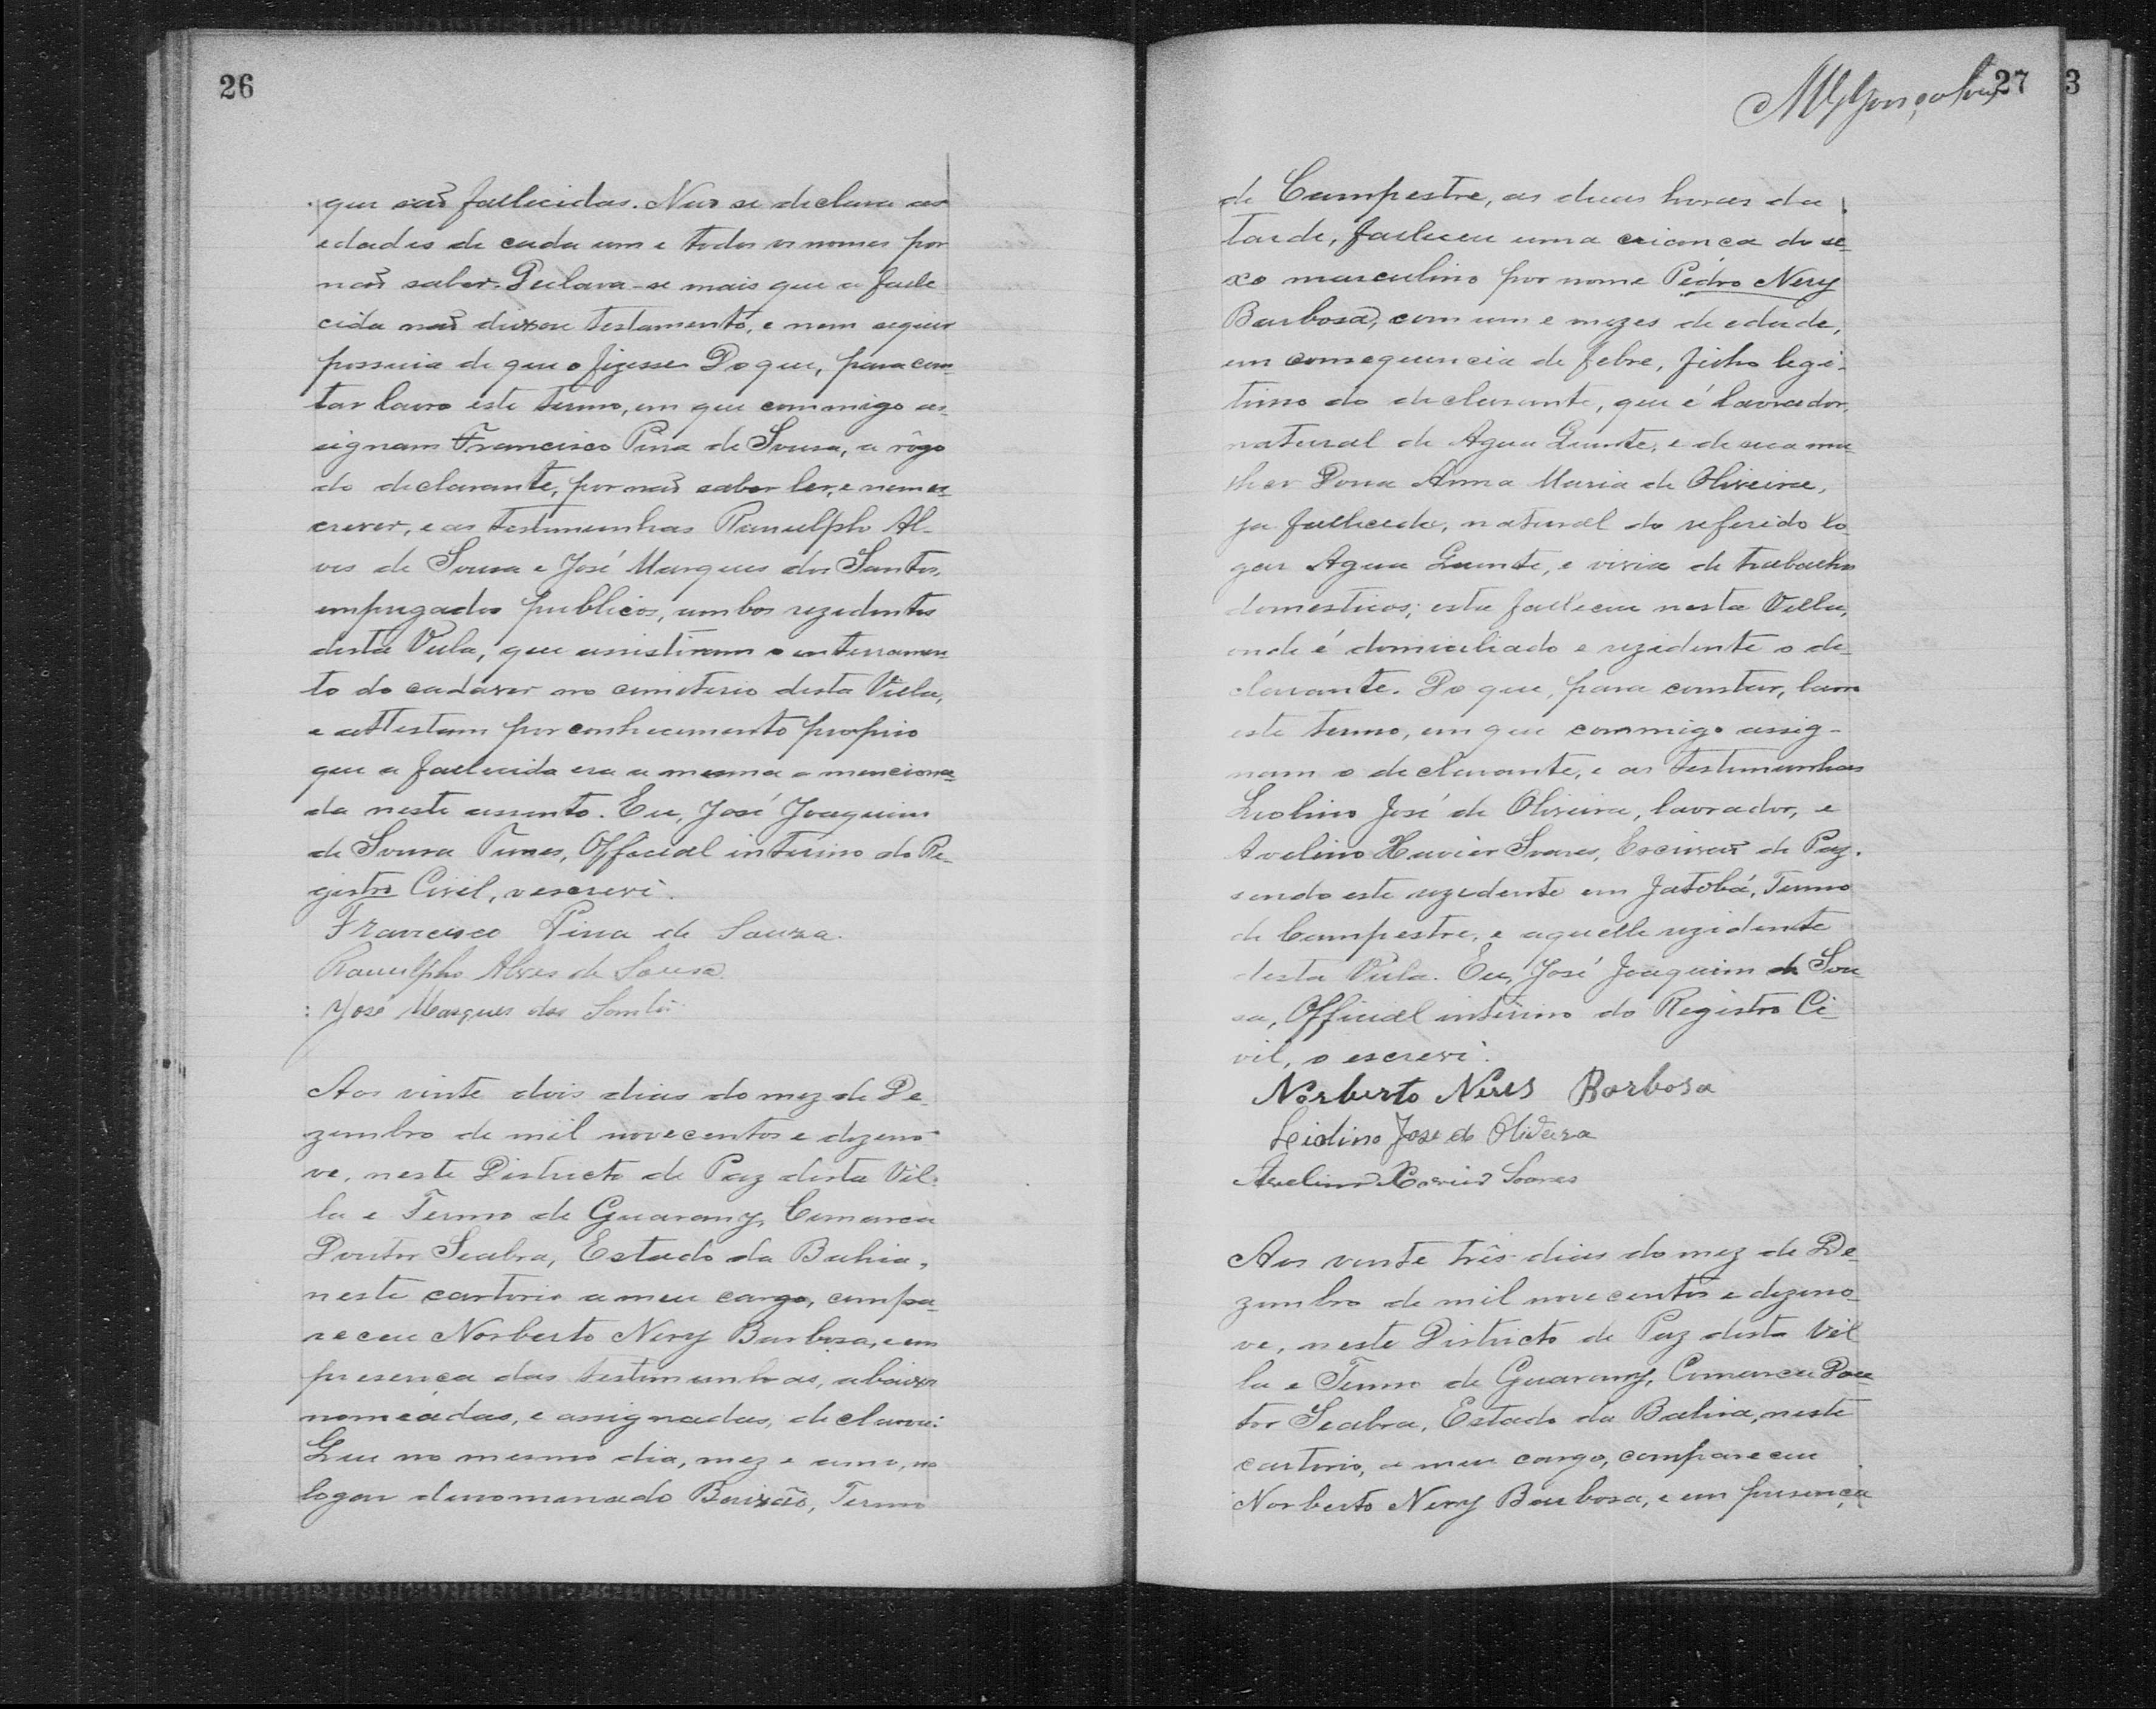 26
que são fallecidas. Não se declara as
edades de cada um e todos os nomes por
não saber. Declara-se mais que a falle
cida não deixou testamento, e nem siquer
possuia de que o fizesse. Do que, para cons-
tar lavro este termo, em que commigo as-
signam Francisco Pina de Sousa, a rôgo
do declarante, por não saber ler, e nem es-
crever, e as testemunhas Ranulpho Al-
ves de Sousa e José Marques dos Santos,
empregados publicos, ambos rezidentes
desta Villa, que assistiram o enterramen-
to do cadaver no cimiterio desta Villa,
e attestam por conhecimento proprio
que a fallecida era a mesma a menciona-
da neste assento. Eu, José Joaquim
de Sousa Tunes, Official interino do Re-
gistro Civil, o escrevi.
Francisco Pina de Souza.
Ranulpho Alves de Sousa.
José Marques dos Santos
Aos vinte dois dias do mez de De-
zembro de mil novecentos e dezeno-
ve, neste Districto de Paz desta Vil-
la e Termo de Guarany, Comarca
Doutor Seabra, Estado da Bahia,
neste cartorio a meu cargo, compa-
receu Norberto Nery Barbosa, e em
presença das testemunhas, abaixo
nomeadas, e assignadas, declarou:
Que no mesmo dia, mez e anno, no
logar denominado Baixão, Termo
27
3
MGonçalves
de Campestre, as duas horas da
tarde, falleceu uma criança do se-
xo masculino por nome Pedro Nery
Barbosa, com um e mezes de edade,
em consequencia de febre, filho legi-
timo do declarante, que é lavrador,
natural de Agua Quente, e de sua mu-
lher Dona Anna Maria de Oliveira,
ja fallecida, natural do referido lo-
gar Agua Quente, e vivia de trabalhos
domesticos; esta falleceu nesta Villa,
onde é domiciliado e rezidente o de-
clarante. Do que, para constar, lavro
este termo, em que commigo assig-
nam o declarante, e as testemunhas
Liolino José de Oliveira, lavrador, e
Avelino Xavier Soares, Escrivão de Paz.
sendo este rezidente em Jatobá, Termo
de Campestre, e aquelle rezidente
desta Villa. Eu, José Joaquim de Sou-
sa, Official interino do Registro Ci-
vil, o escrevi.
Norberto Neres Barbosa
Liolino Jose de Olivera
Avelino Xavier Soares
Aos vinte três dias do mez de De-
zembro de mil novecentos e dezeno-
ve, neste Districto de Paz desta Vil
la e Termo de Guarany, Comarca Dou
tor Seabra, Estado da Bahia, neste
cartorio, a meu cargo, compareceu
Norberto Nery Barbosa, e em presença